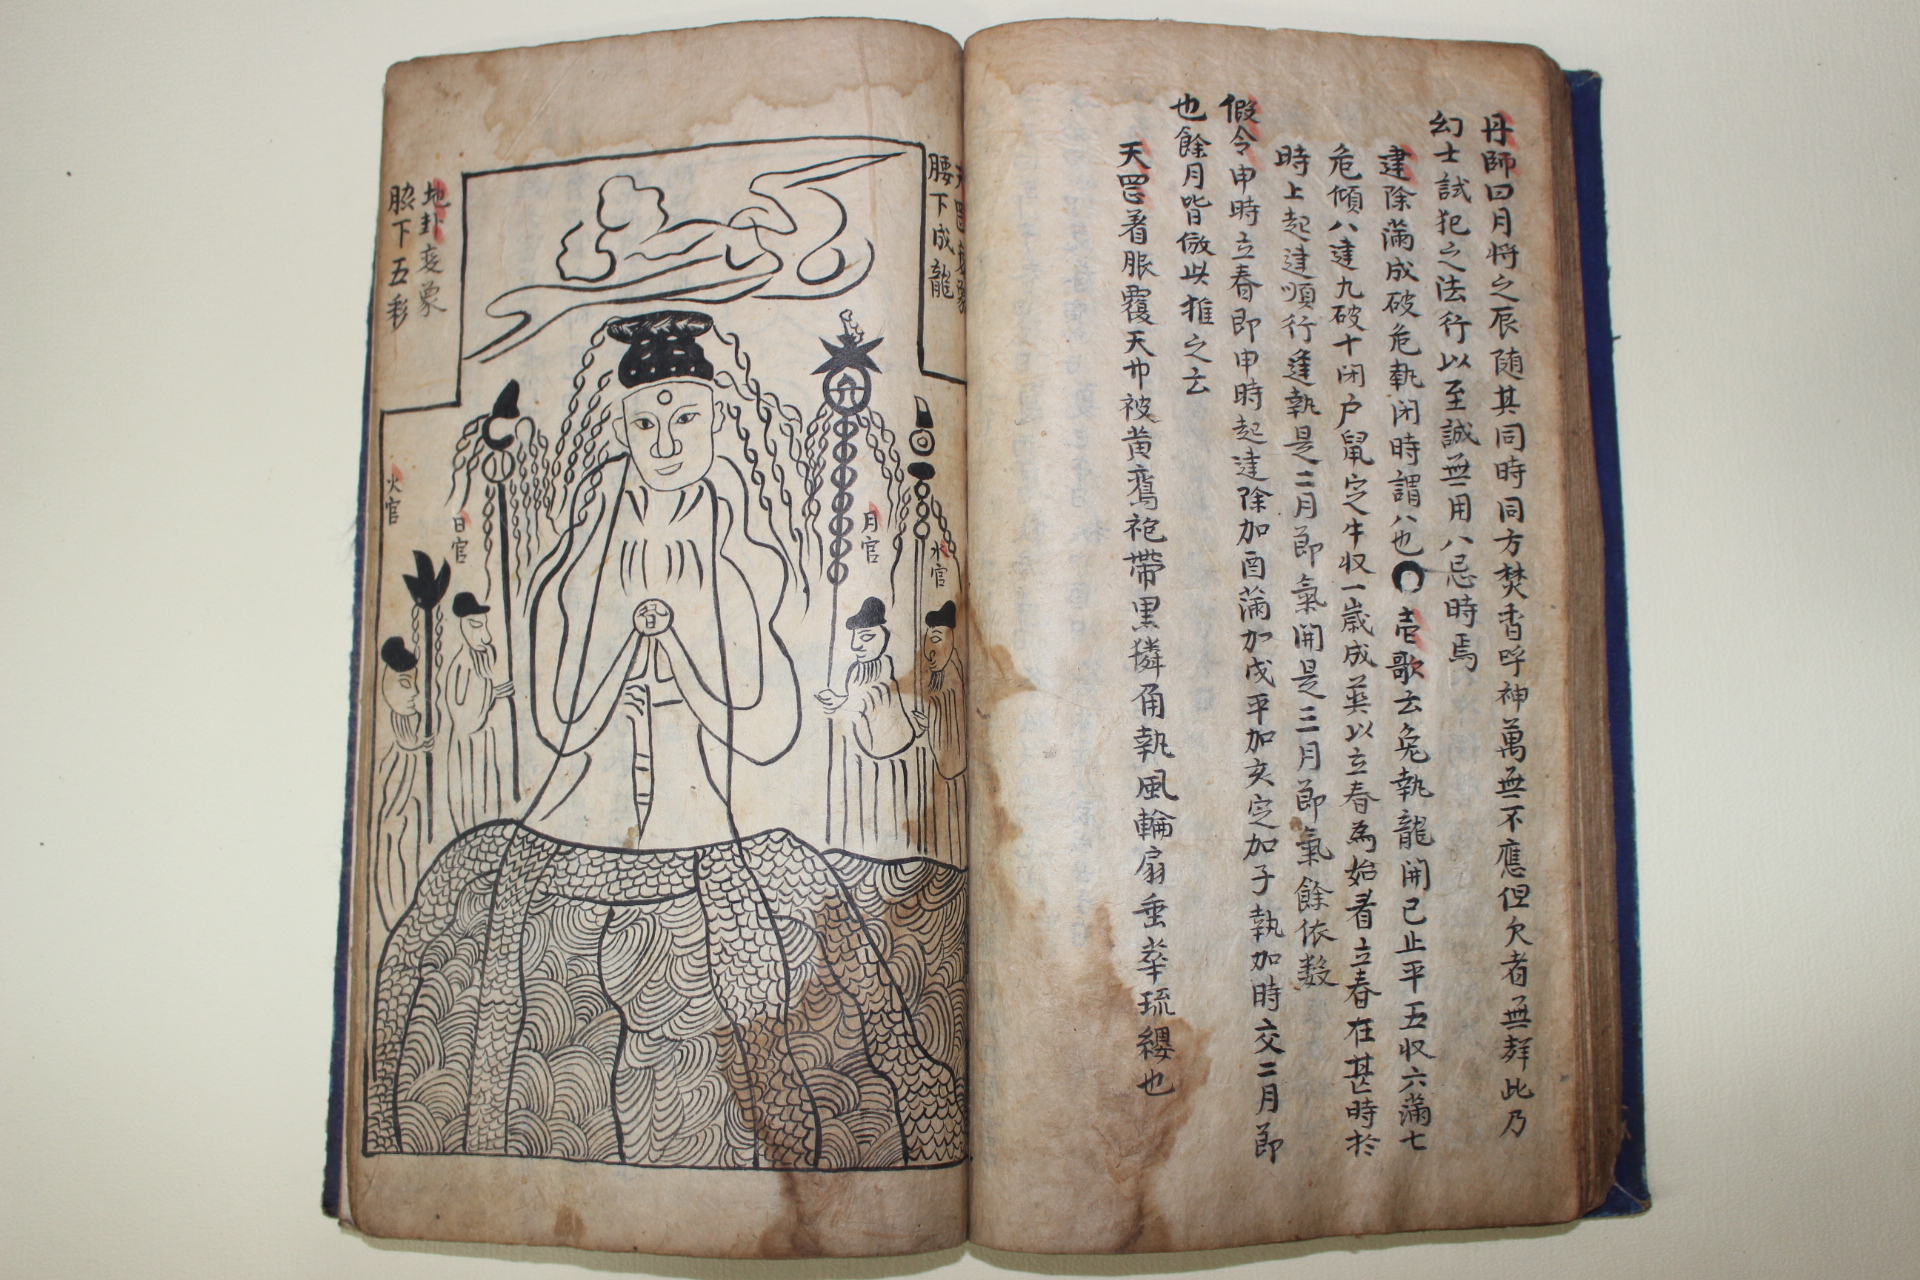 丹師曰月将之辰随其同時同方焚香呼神萬無不應但欠者無辤此乃
幻士試犯之法行以至誠無用八忌時焉
建除滿成破危執闭時謂八也 壱歌云兔執龍開已止平五収六滿七
危傾八建九破十闭户鼠定牛収一歳成英以立春為始看立春在甚時於
時上起建順行逢執是二月節氣開是三月節氣餘依数
假令申時立春即申時起建除加酉滿加戌平加亥定加子執加時交二月節
也餘月皆倣此推之云
天罡着脹覆天巾被黄鸞袍帶黒獜甬執風輪扇垂拳琉纓也
天罡変象
腰下成龍
地卦変象
脇下五彩
水官
月官
日官
火官